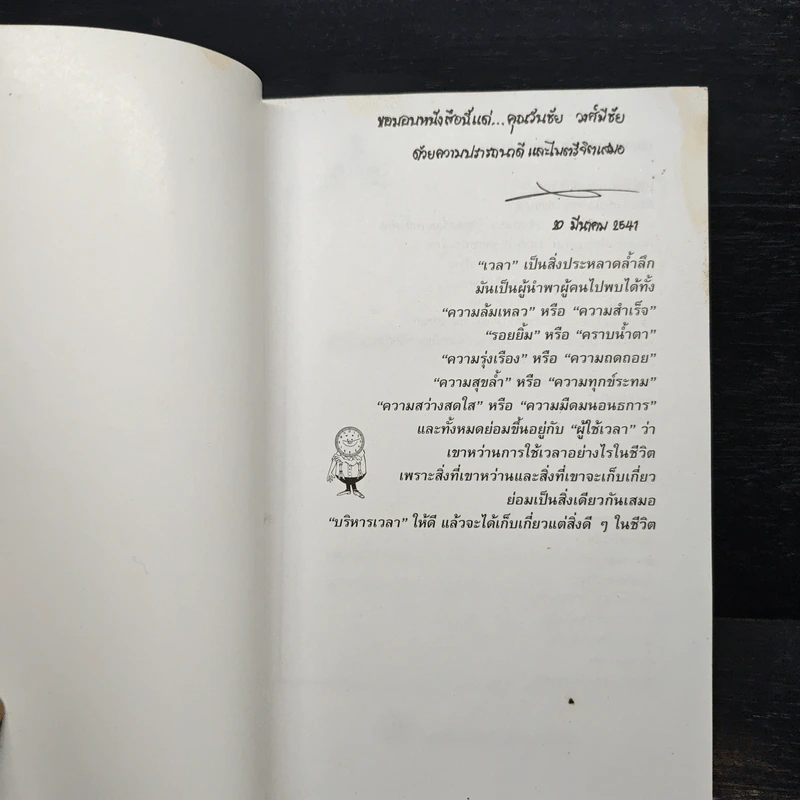 ขอมอบหนังสือนี้แด่...คุณวันชัย วงศ์มีชัย
ด้วยความปรารถนาดี และไมตรีจิตเสมอ
20 มีนาคม 2541
“เวลา” เป็นสิ่งประหลาดล้ำลึก
มันเป็นผู้นำพาผู้คนไปพบได้ทั้ง
“ความล้มเหลว” หรือ “ความสำเร็จ”
“รอยยิ้ม” หรือ “คราบน้ำตา”
“ความรุ่งเรือง” หรือ “ความถดถอย”
“ความสุขล้ำ” หรือ “ความทุกข์ระทม”
“ความสว่างสดใส” หรือ “ความมืดมนอนธการ”
และทั้งหมดย่อมขึ้นอยู่กับ “ผู้ใช้เวลา” ว่า
เขาหว่านการใช้เวลาอย่างไรในชีวิต
เพราะสิ่งที่เขาหว่านและสิ่งที่เขาจะเก็บเกี่ยว
ย่อมเป็นสิ่งเดียวกันเสมอ
“บริหารเวลา” ให้ดี แล้วจะได้เก็บเกี่ยวแต่สิ่งดี ๆ ในชีวิต